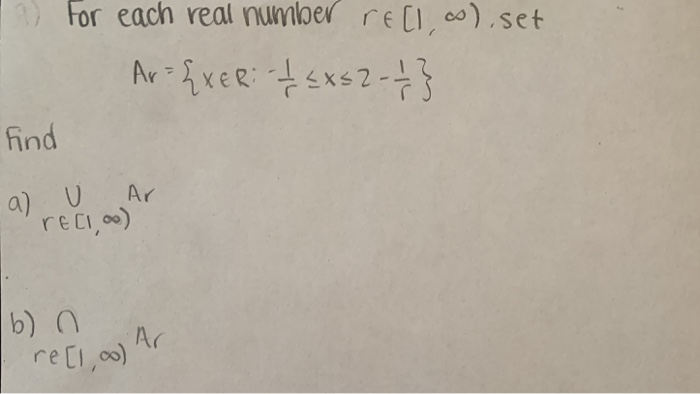 1) For each real number r∈[1,∞), set
Ar = {x∈R: -1/r ≤ x ≤ 2 - 1/r}
Find
a) ∪ Ar
r∈[1,∞)
b) ∩ Ar
r∈[1,∞)